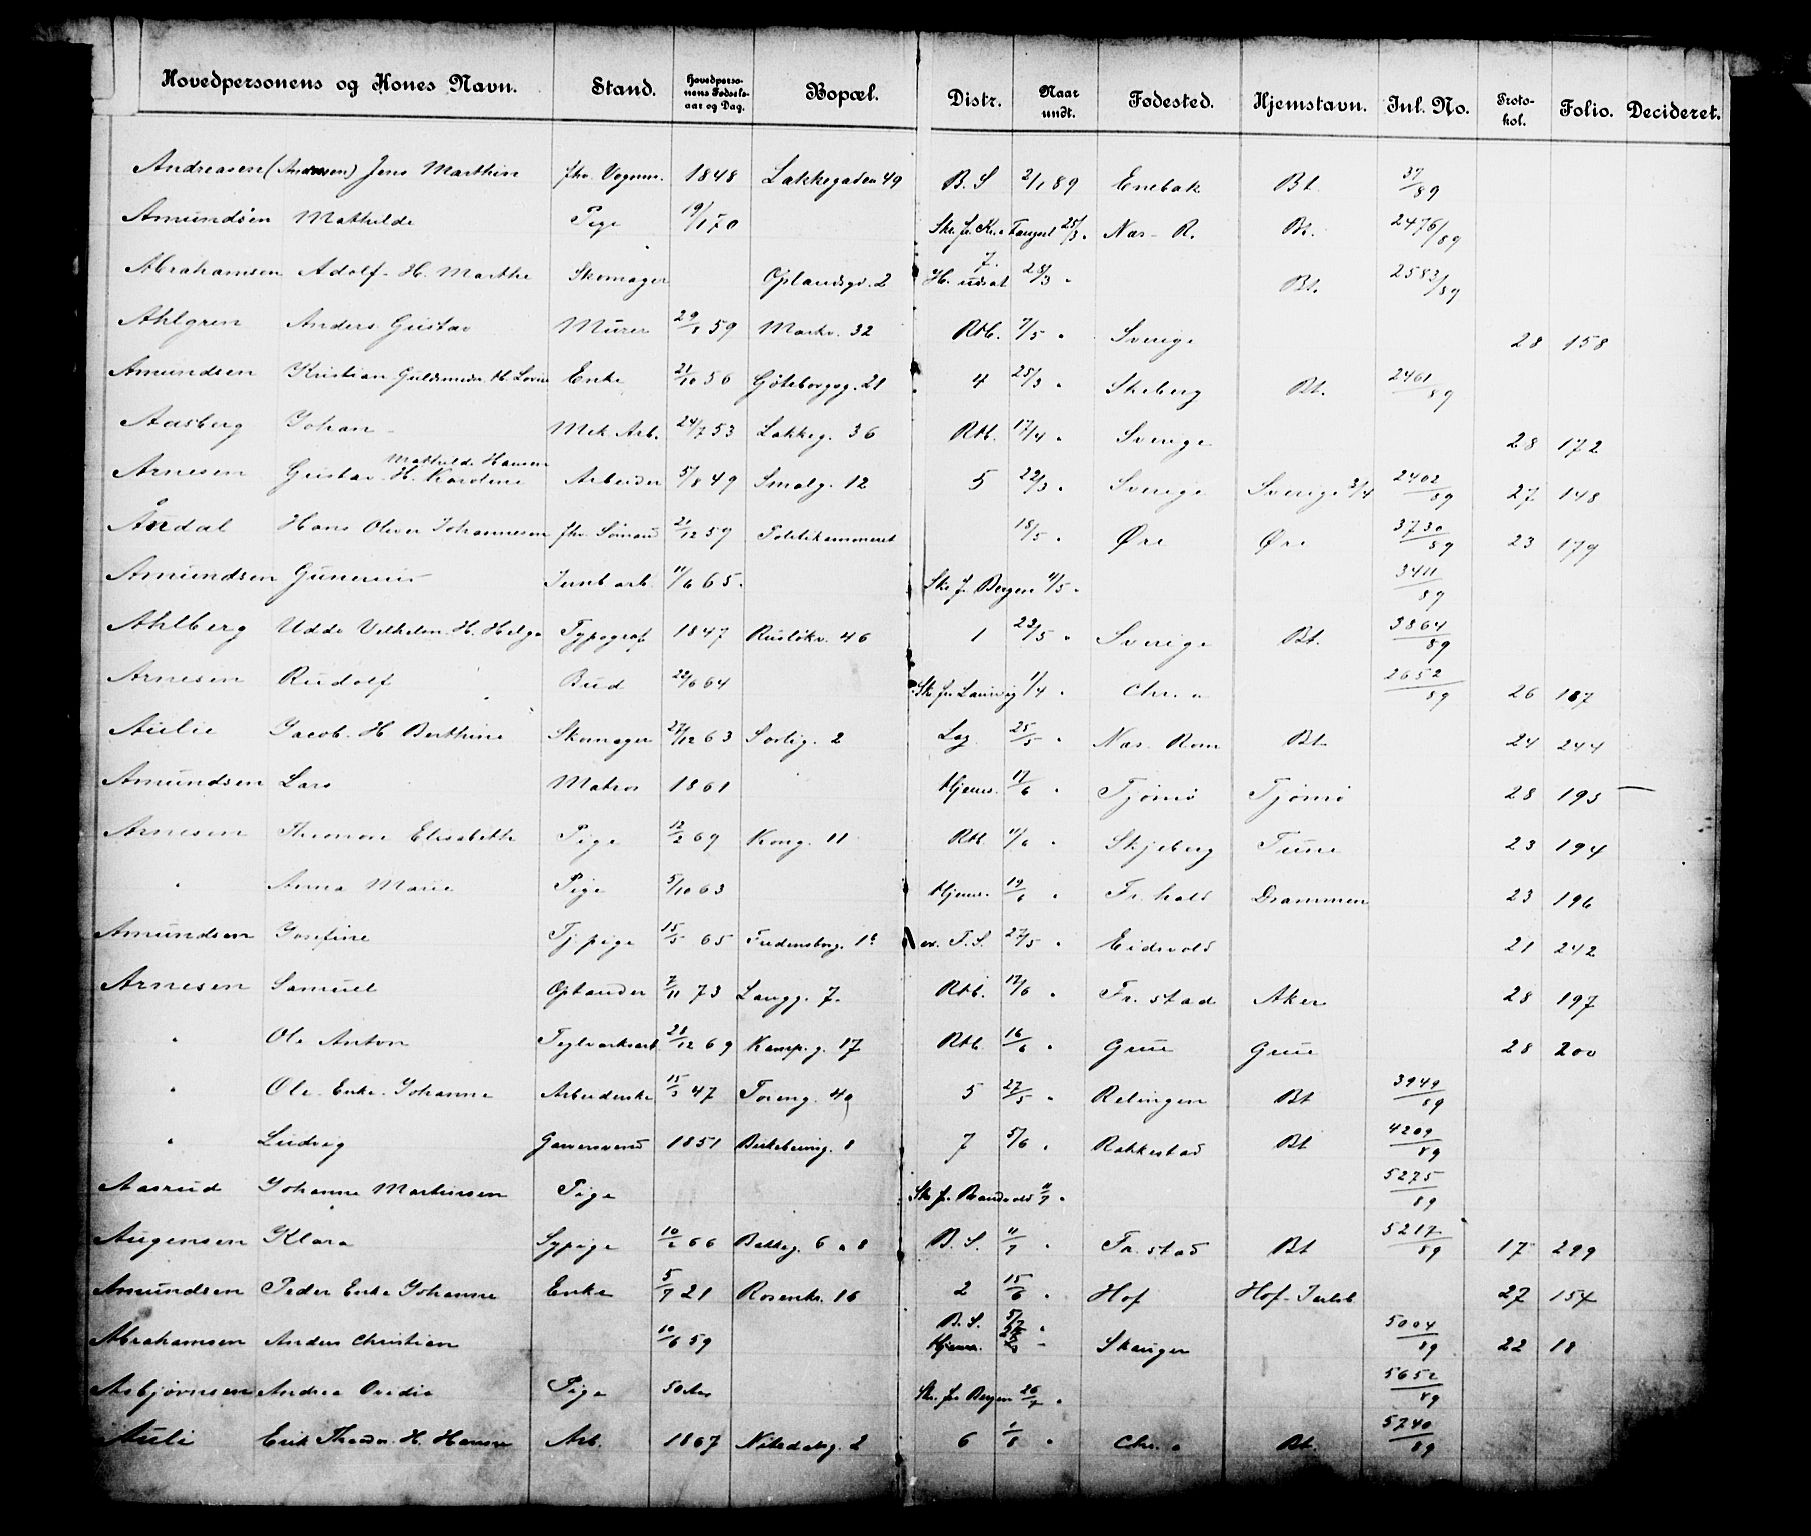 Hovedpersonens og Kones Navn. Stand. Hovedpersonens Fødselsaar og Dag. Bopæl. Distr. Naar undt. Fødested. Hjemstavn. Jul. No. Protokol. Folio. Decideret.
Andreasen (Andersen) Jens Marthin fhv. Vognm. 1848 Lakkegaden 49 B. S 2/1 89 Enebak Bt. 37/89
Amundsen Mathilde Pige 19/1 70 Skr. fr. Kr.a Fængsel 25/3 " Næs - R. Bt. 2476/89
Abrahamsen Adolf H. Marthe Skomager Oplandsgd. 2 7. H. udsat 28/3 " Bt. 2582/89
Ahlgren Anders Gustav Murer 29/1 59 Markv. 32 Rtb. 7/5 " Sverige 28 158
Amundsen Kristian Guldsmeds H. Lovise Enke 21/10 56 Göteborgsg. 21 4 25/3 " Skeberg Bt. 2461/89
Aasberg Johan Mek Arb. 24/7 53 Lakkeg. 36 Rtb. 17/4 " Sverige 28 172
Arnesen Gustav H. Karoline Mathilde Hansen Arbeider 5/8 49 Smalg. 12 5 22/3 " Sverige Sverige 3/4 2402/89 27 148
Åndal Hans Oliver Johannesen fhv. Sømand 21/12 59 Politikammeret 18/5 " Øre Øre 3730/89 23 179
Amundsen Gunerius Jernb arb. 11/6 65. Skr. f. Bergen 11/5 " 3411/89
Ahlberg Uddo Vilhelm H. Helga Typograf 1847 Ruseløkv. 46 1 23/5 " Sverige Bt. 3864/89
Arnesen Rudolf Bud 22/6 64 Skr. fr. Laurvig 1/4 " Chr. a 2652/89 26 187
Aulie Jacob H Berthine Skomager 27/12 63 Sorlig. 2 Leg 25/5 " Næs Rom Bt. 24 244
Amundsen Lars Matros 1861 Hjems. 17/6 " Tjømø Tjømø 28 193 —
Arnesen Theonore Elisabeth Pige 12/2 69 Kong. 11 Rtb 11/6 " Skjeberg Tune 23 194
" Anna Marie Pige 5/10 63 Hjems. 19/6 " Fr. hald Drammen 23 196
Amundsen Josefine Tj pige 15/5 65 Fredensborg. 1 ov. T. S. 27/5 " Eidsvold 21 242
Arnesen Samuel Opvarter 7/11 73 Langg. 7. Rtb. 17/6 " Fr. stad Aker 28 197
" Ole Anton Teglværksarb. 21/12 69 Kamp. g. 17 Rtb. 16/6 " Grue Grue 28 200
" Ole Enke Johanne Arbeiderske 15/3 47 Toieng. 40 5 27/5 " Relingen Bt 3949/89
" Ludvig Garversvend 1851 Birkebeinerg. 8 7 5/6 " Rakkestad Bt 4209/89
Aasrud Johanne Martinsen Pige Skr. fr. Brandvold 11/7 " 5275/89
Augensen Klara Sypige 10/2 66 Bakkeg. 6 a 8 B. S. 11/7 " Fr. stad Bt 5217/89 17 299
Amundsen Peder Enke Johanne Enke 5/7 21 Rosenkr. 16 2 15/6 " Hof Hof - Jarlsb 27 154
Abrahamsen Anders Christian 10/6 59 B. S. 5/7 " Hjems. Skauger 5004/89 22 18
Asbjørnsen Andrea Ovedia Pige 50 Aar Skr. fr. Bergen 26/7 " 5652/89
Auli Erik Theodor H. Hansine Arb. 1867 Nitedalsg. 2 6 1/8 " Chr. a Bt. 5740/89